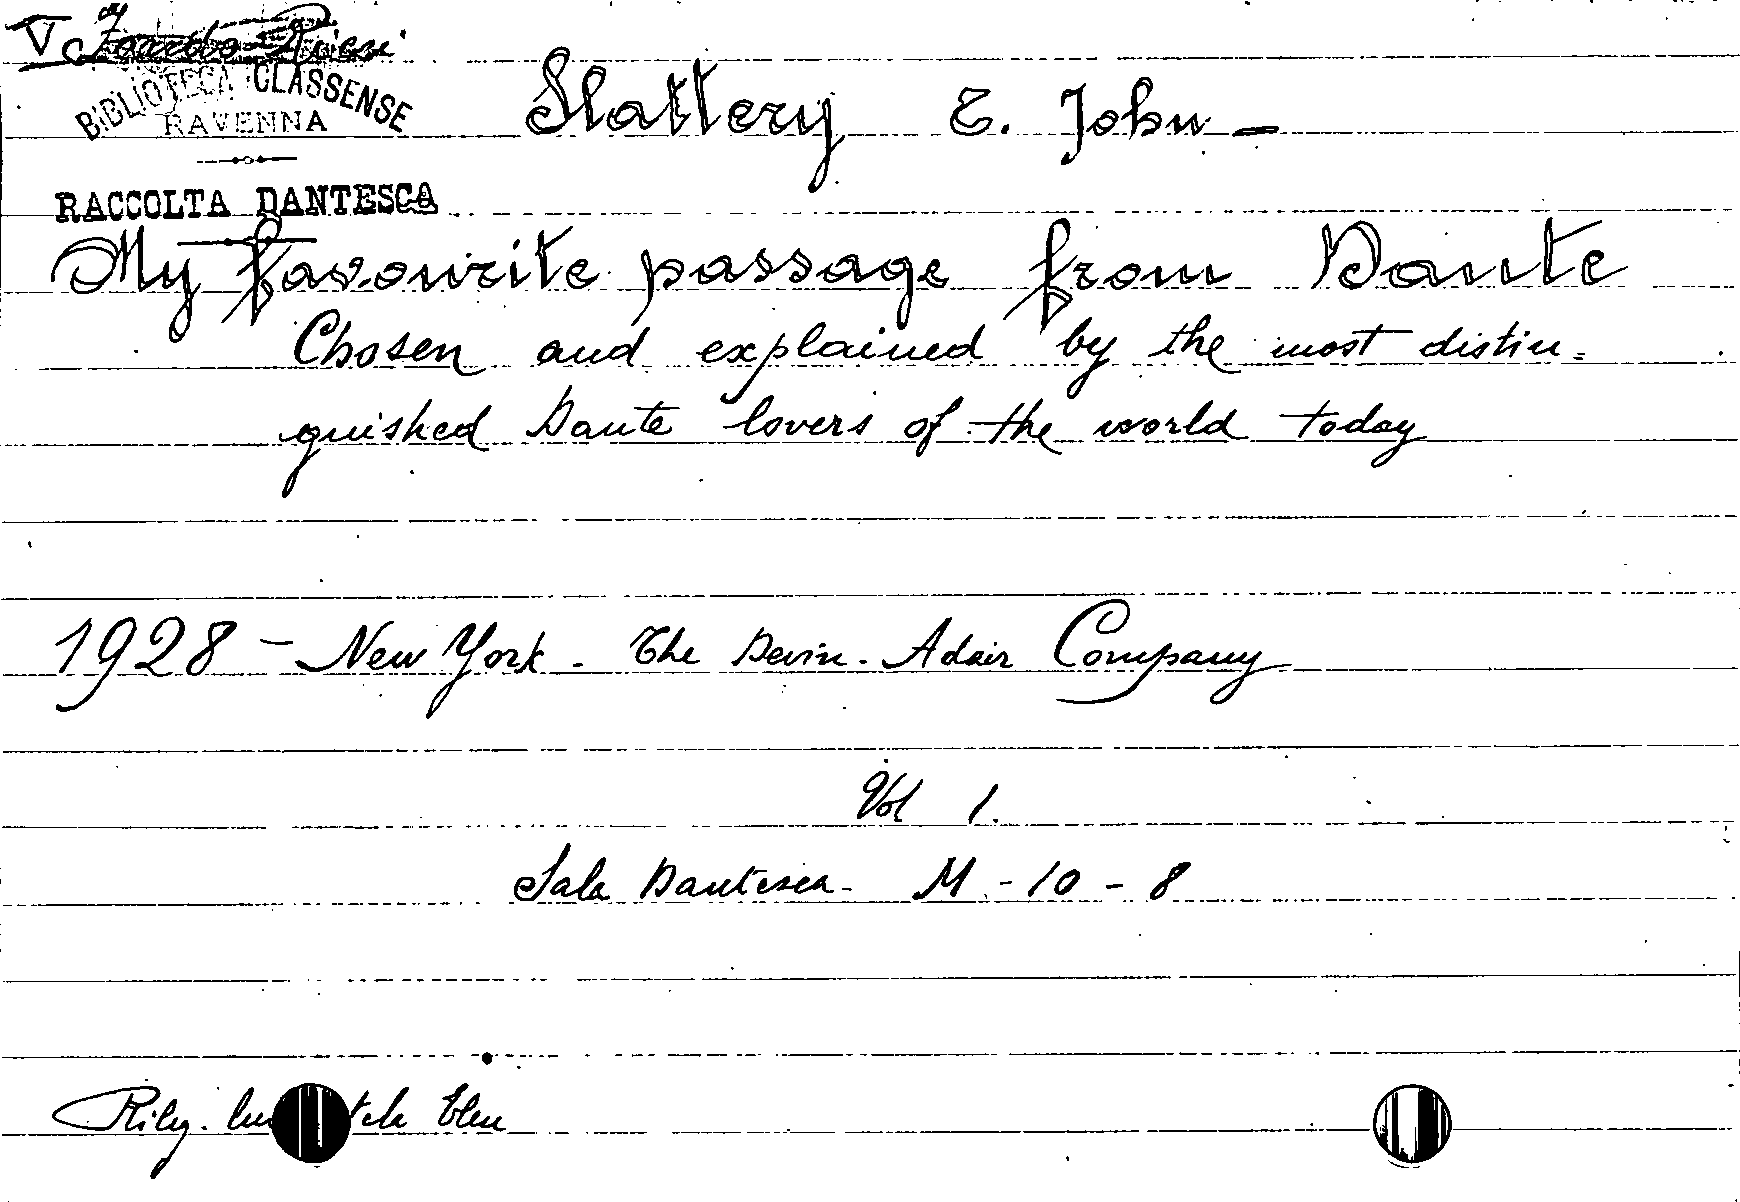 V Fondo Ricci
BIBLIOTECA CLASSENSE
RAVENNA
Slattery E. John -
RACCOLTA DANTESCA
My favourite passage from Dante
Chosen and explained by the most distin=
guished Dante lovers of the world today
1928 - New York - The Devin - Adair Company
Vol 1.
Sala Dantesca - M - 10 - 8
Rileg. tela bleu